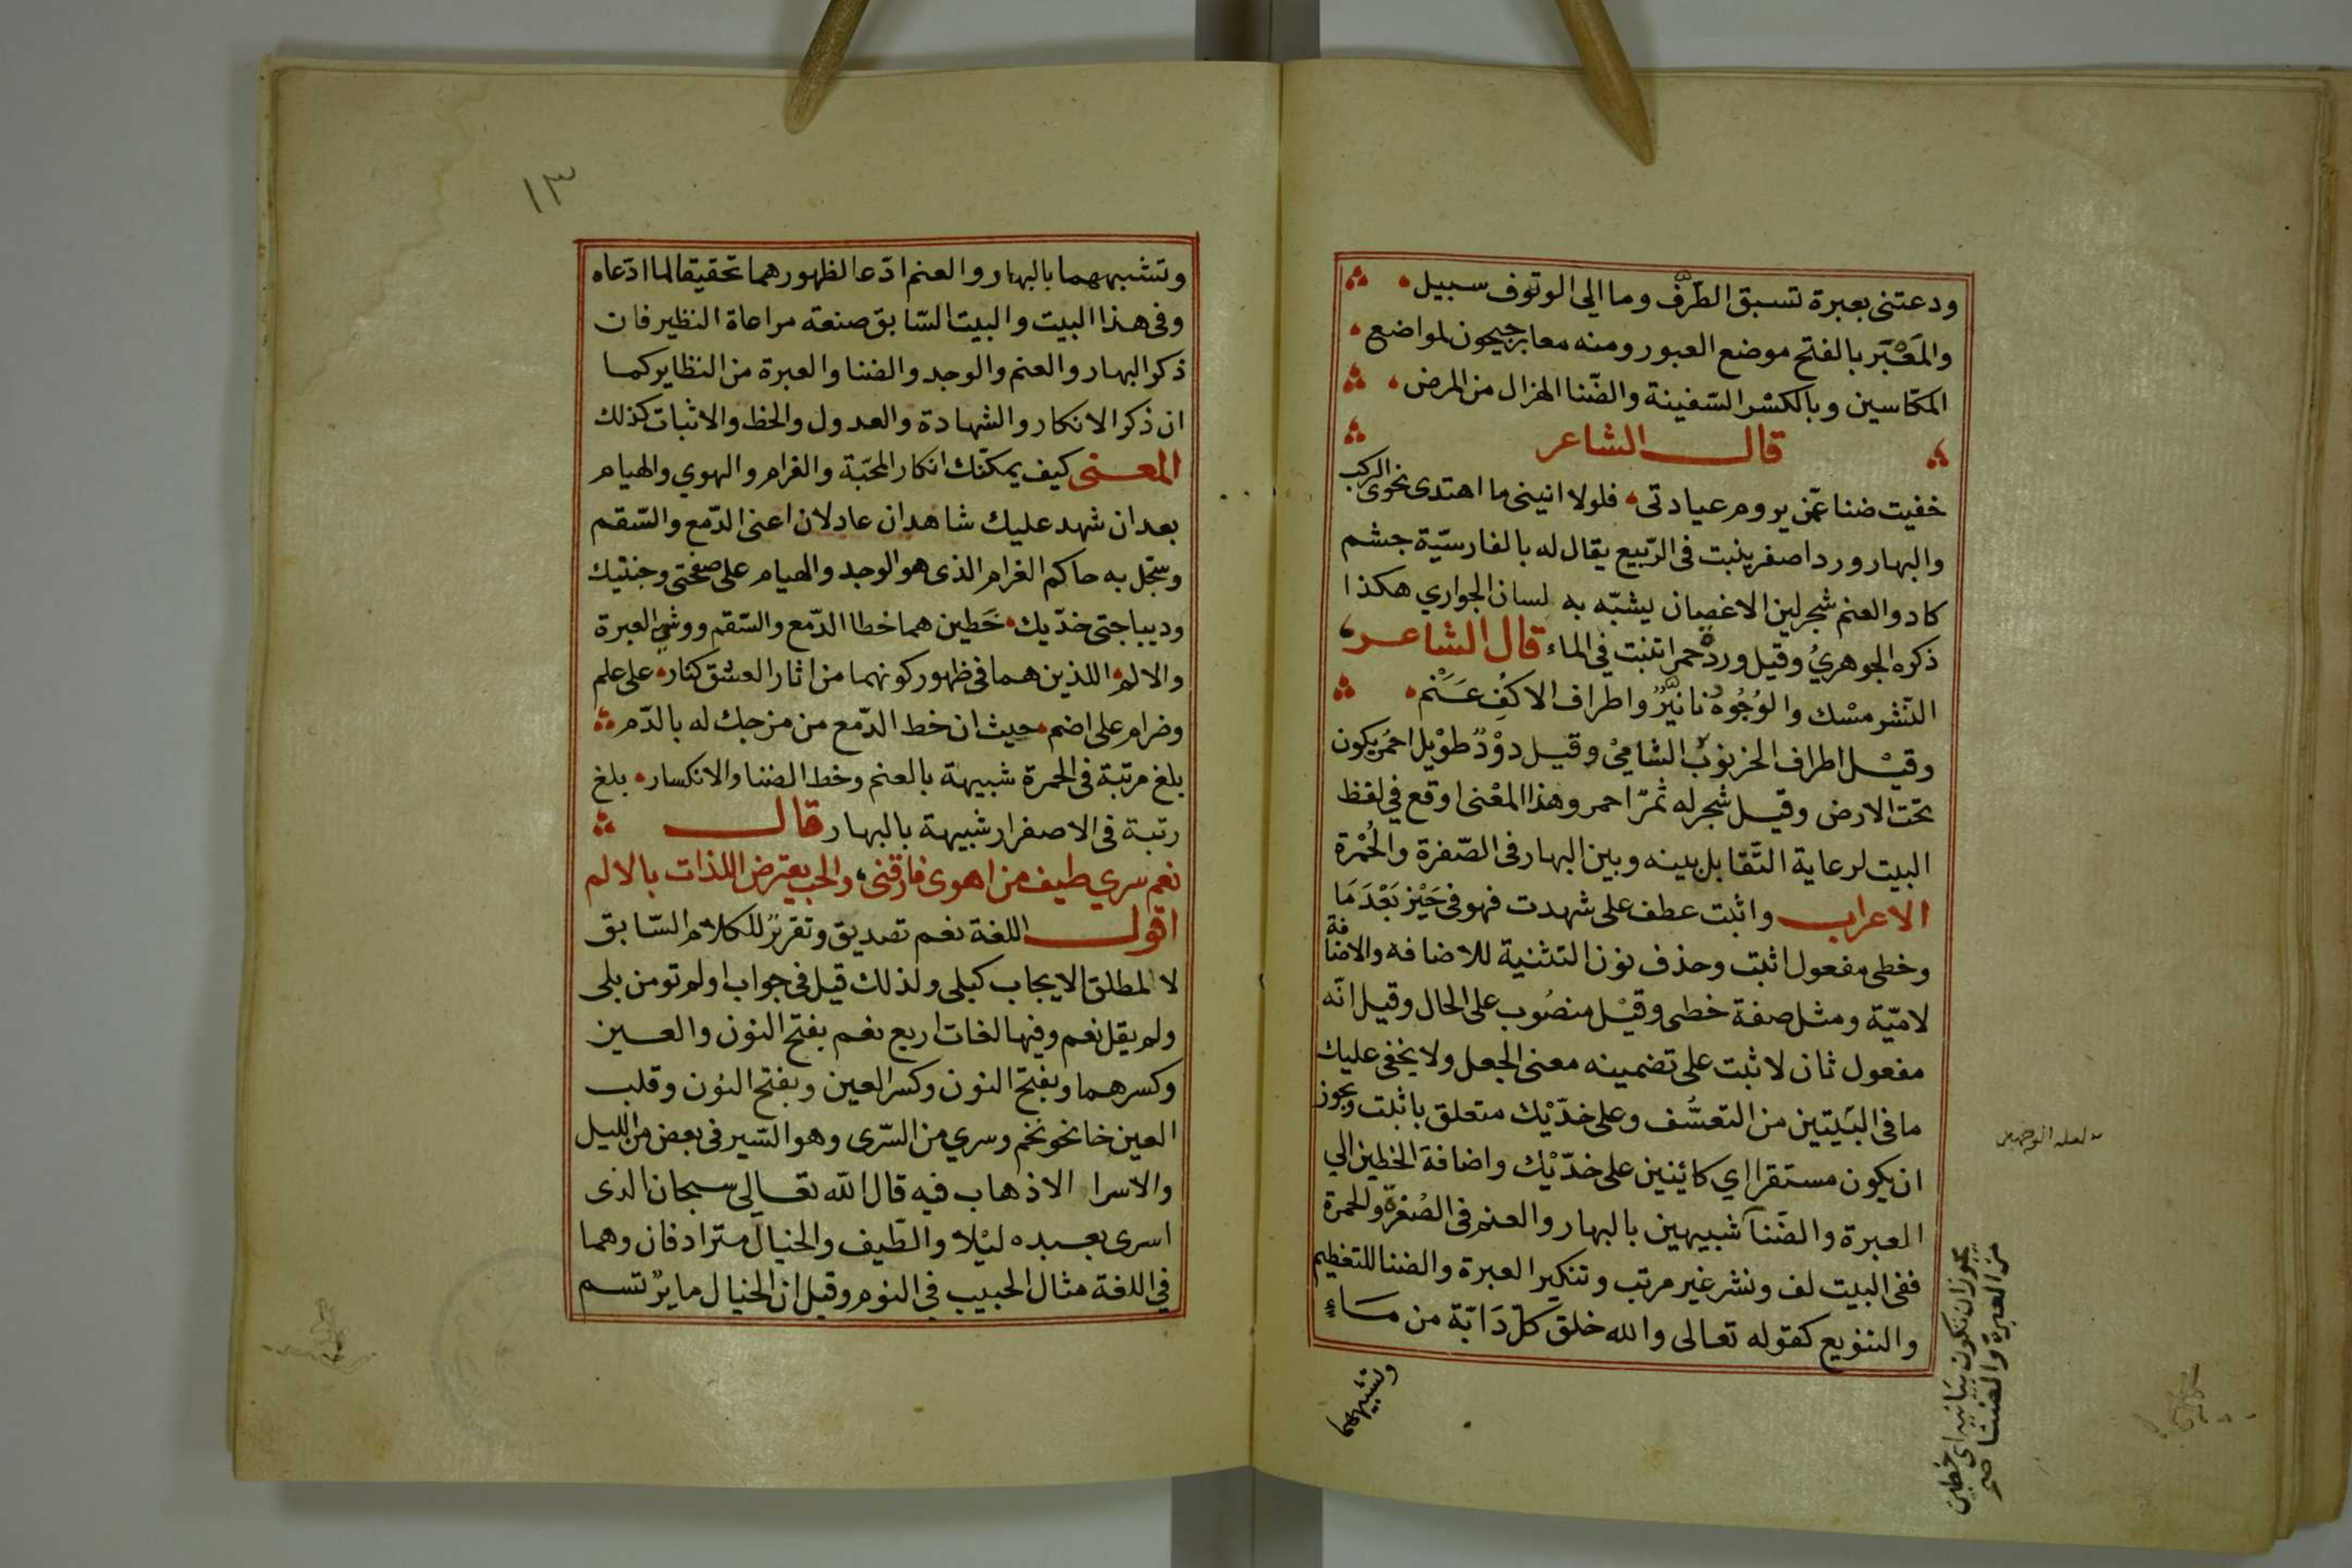 ودعتنى بعبرة تسبق الطرف وما الى الوقوف سبيل
والمَعْبَر بالفتح موضع العبور ومنه معابر جيحون لمواضع
المكّاسين وبالكسر السّفينة والضّنا الهزال من المرض
قال الشاعر
خفيت ضنا عمّن يروم عيادتى فلولا انينى ما اهتدى نحوى الركب
والبهار ورد اصفر ينبت فى الرّبيع يقال له بالفارسيّة جشم
كاد والعنم شجر لين الاغصان يشبّه به لسان الجواري هكذا
ذكره الجوهريُ وقيل وردة حمرا تنبت في الماء قال الشاعر
النّشر مسْك والوُجُوهُ نانيرٌ واطراف الاكُفِ عَنَم
وقيْل اطراف الخرنوب الشامىْ وقيل دوْدٌ طوْيل احمُر يكون
تحت الارض وقيل شجر له ثمرٌ احمر وهذا المعْنى اوقع في لفظ
البيت لرعاية التّقابل بينه وبين البهار فى الصّفرة والحُمْرة
الاعراب واثبت عطف على شهدت فهو فى حَيْز بَعْدَ مَا
وخطى مفعول اثبت وحذف نون التثنية للاضافه والاضافة
لاميّة ومثل صفة خطى وقيْل منصُوب على الحال وقيل انّه
مفعول ثان لاثبت على تضمينه معنى الجعل ولا يخفى عليك
مافى البَيتين من التعسُّف وعلى خدّيْك متعلق باثبت ويجوز
ان يكون مستقرا اي كائنين على خدّيْك واضافة الخطين الي
العبرة والضّنا شبيهين بالبهار والعنم فى الصُفرةّ والحمرة
ففى البيت لف ونشر غير مرتب وتنكير العبرة والضنا للتعظيم
والتنويع كقوله تعالى والله خلق كلّ دَابّة من مَاءٍ
وتشبيههما
لعله الوجهين
يجوز ان تكون بيانيه اي خطين
من العبرة والضنا صح
١٣
وتشبيههما بالبهار والعنم ادّعا لظهورهما تحقيقا لما ادّعاه
وفى هذا البيت والبيت السّابق صنعة مراعاة النظير فان
ذكر البهار والعنم والوجد والضنا والعبرة من النظاير كما
ان ذكر الانكار والشّهادة والعدول والخط والاثبات كذلك
المعنى كيف يمكنّك انكار المحبّة والغرام والهوي والهيام
بعد ان شهد عليك شاهدان عادلان اعنى الدّمع والسّقم
وسجّل به حاكم الغرام الذى هو الوجد والهيام على صفحتى وجنتيك
وديباجتى خدّيك خَطين هما خطا الدّمع والسّقم ووشي العبرة
والالم اللذين هما فى ظهور كونهما من اثار العشق كنار على علم
وضرام على اضم حيث ان خط الدّمع من مزجك له بالدّم
بلغ مرتبة فى الحمرة شبيهة بالعنم وخط الضنا والانكسار بلغ
رتبة فى الاصفرار شبيهة بالبهار قال
نعم سري طيف من اهوى فارقنى والحب يعترض اللذات بالالم
اقول اللغة نعم تصديق وتقريرٌ للكلام السّابق
لا لمطلق الايجاب كبلى ولذلك قيل فى جواب اولم تومن بلى
ولم يقل نعم وفيها لغات اربع نعم بفتح النون والعين
وكسرهما وبفتح النون وكسر العين وبفتح النون وقلب
العين حا نحو نحم وسري من السّرى وهو السّير فى بعض من الليل
والاسرا الاذهاب فيه قال اللّه تعالى سبحان الذى
اسرى بعبده ليْلا والطّيف والخيال مترادفان وهما
في اللغة مثال الحبيب في النوم وقيل ان الخيال ما يرْتسم